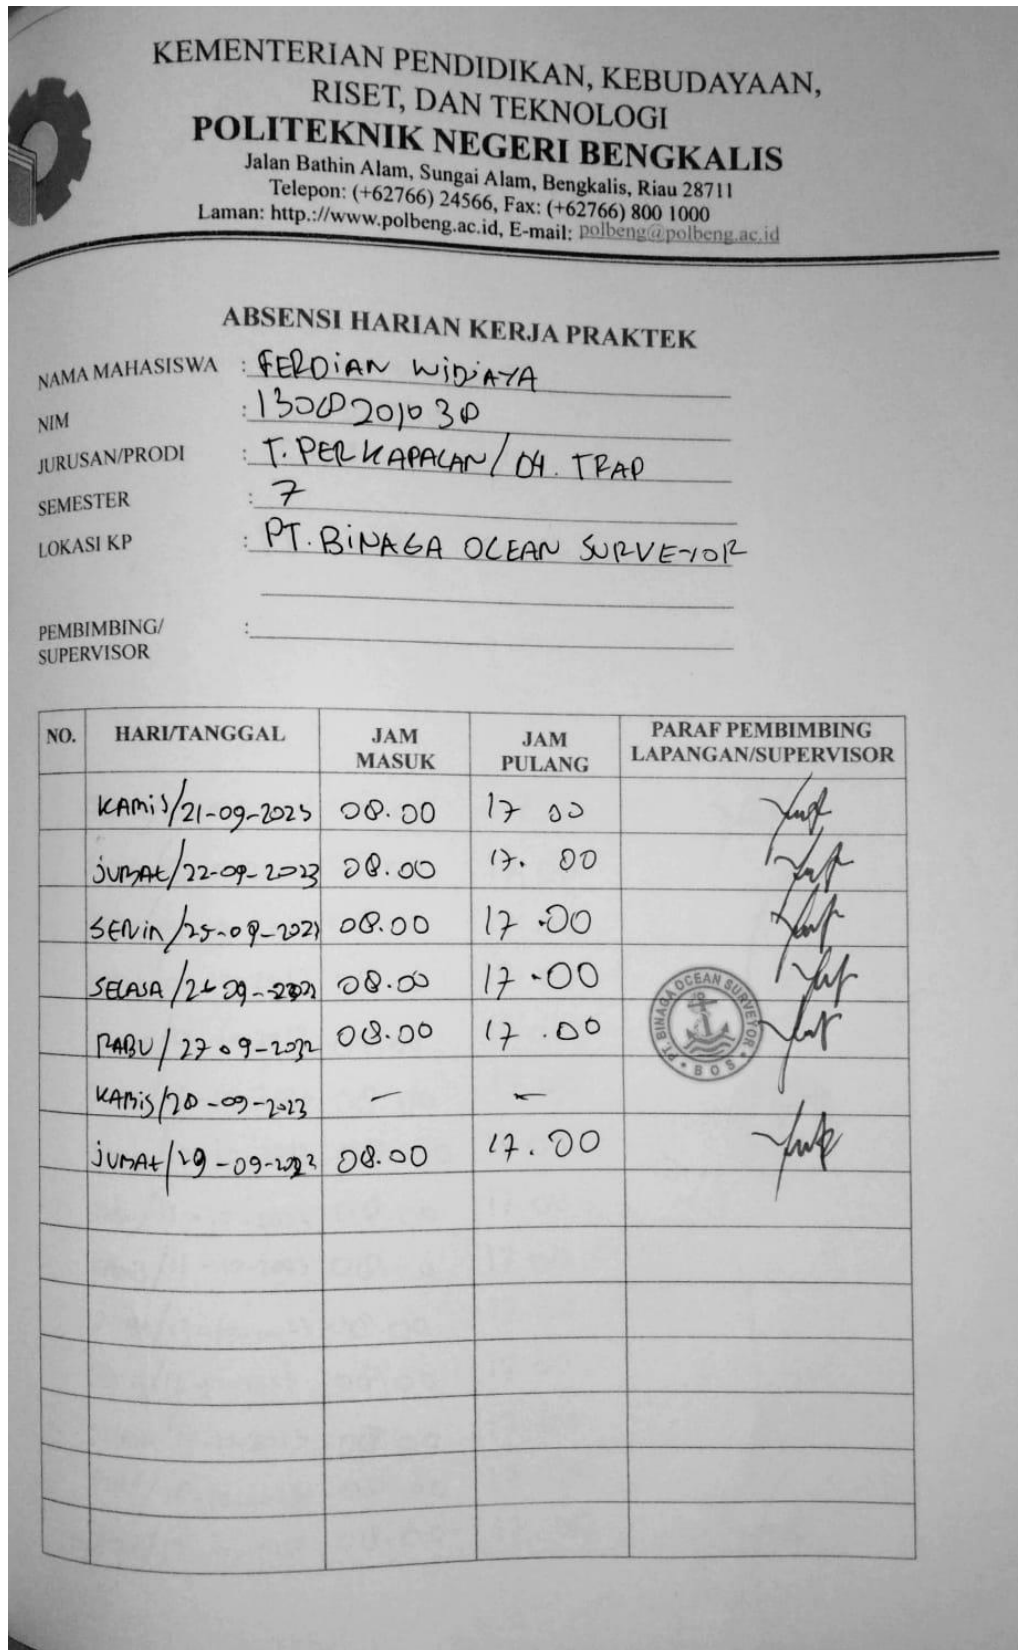 KEMENTERIAN PENDIDIKAN, KEBUDAYAAN,
RISET, DAN TEKNOLOGI
POLITEKNIK NEGERI BENGKALIS
Jalan Bathin Alam, Sungai Alam, Bengkalis, Riau 28711
Telepon: (+62766) 24566, Fax: (+62766) 800 1000
Laman: http.://www.polbeng.ac.id, E-mail: polbeng@polbeng.ac.id
ABSENSI HARIAN KERJA PRAKTEK
NAMA MAHASISWA : FERDiAN WiDiAYA
NIM :
JURUSAN/PRODI : T. PERKAPALAN / D4. TRAP
SEMESTER : 7
LOKASI KP : PT. BiNAGA OCEAN SURVEYOR
PEMBIMBING/ :
SUPERVISOR
NO. HARI/TANGGAL JAM MASUK JAM PULANG PARAF PEMBIMBING LAPANGAN/SUPERVISOR
KAMiS/21-09-2023 08.00 17 00
JUMAt/22-09-2023 08.00 17. 00
SENiN/25-09-2023 08.00 17.00
SELASA/26 09-2023 08.00 17.00
RABU/27 09-2023 08.00 17.00
KAMiS/28-09-2023 - -
JUMAt/29-09-2023 08.00 17.00
PT. BINAGA OCEAN SURVEYOR
BOS